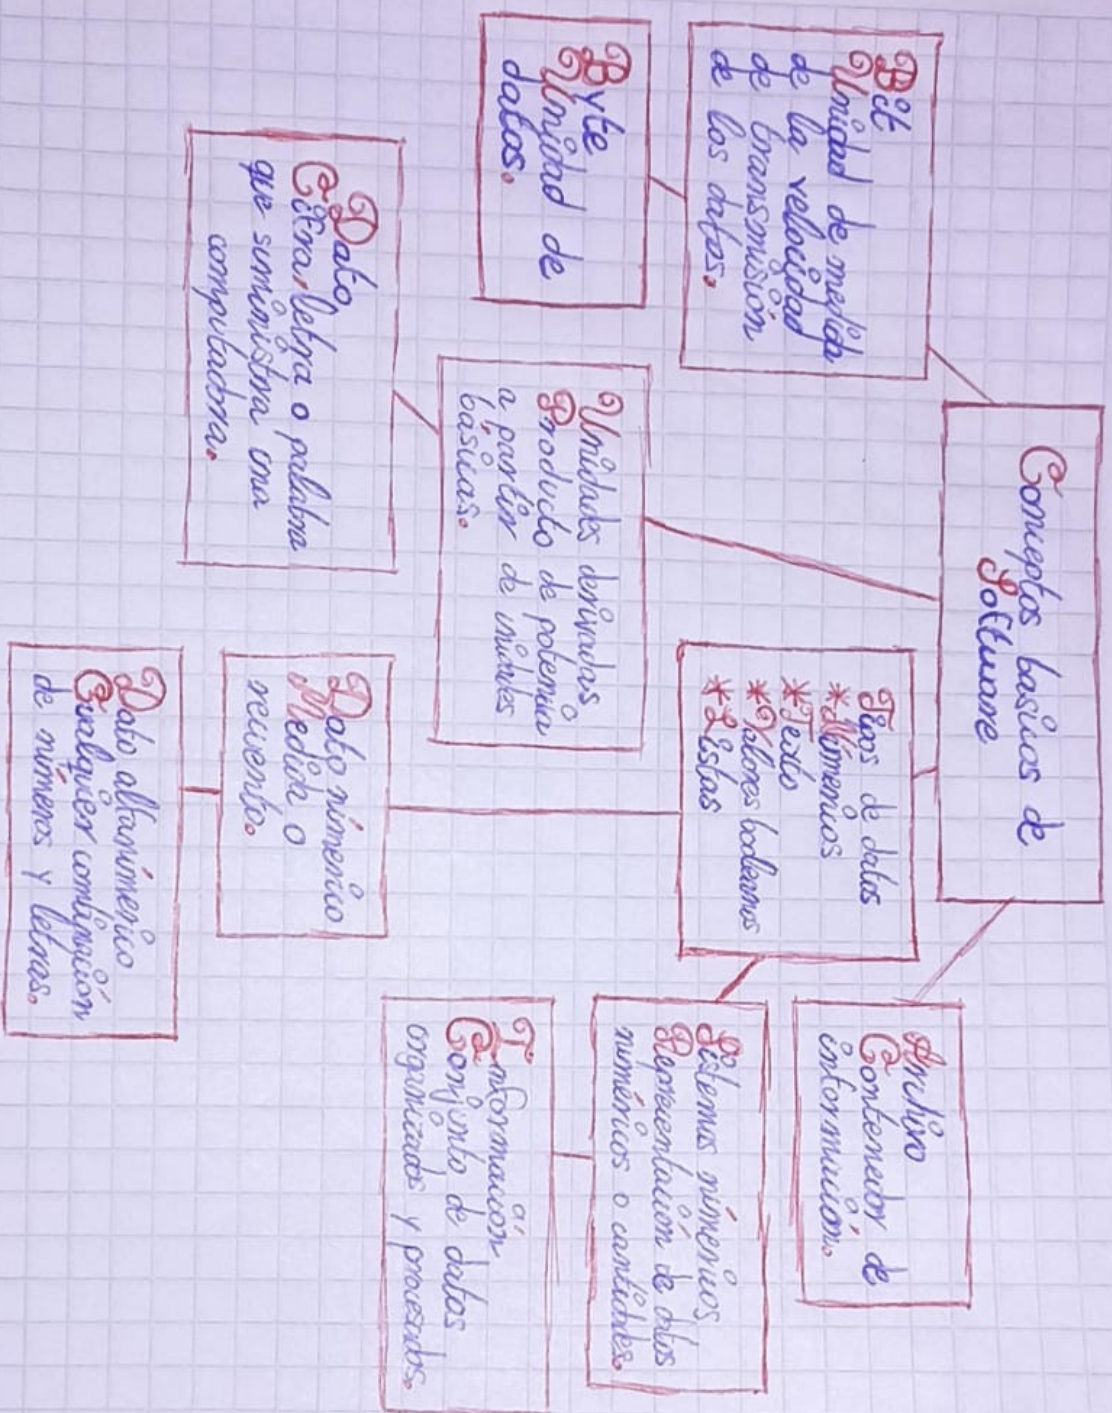 Conceptos basicos de
Software
Bit
Unidad de medida
de la velocidad
de transmisión
de los datos.
Byte
Unidad de
datos.
Unidades derivadas
Producto de potencia
a partir de unidades
básicas.
Dato
Cifra, letra o palabra
que suministra una
computadora.
Tipos de datos
*Númericos
*Texto
*Valores booleanos
*Listas
Dato númerico
Medida o
recuento.
Dato alfanúmerico
Cualquier combinación
de números y letras.
Archivo
Contenedor de
información.
Sistemas númericos
Representación de datos
numéricos o cantidades.
Información
Conjunto de datos
organizados y procesados.